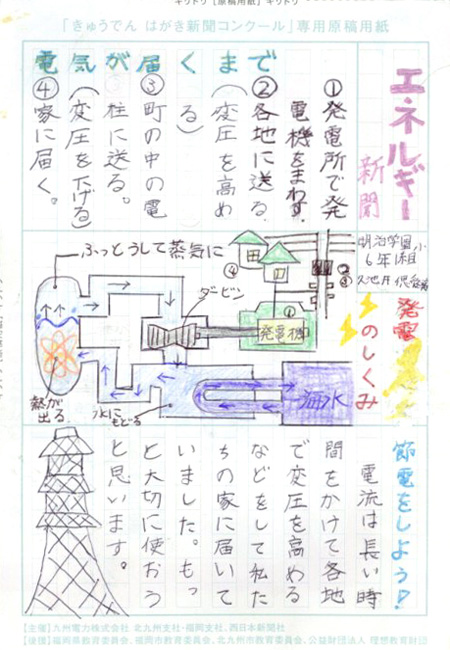 キリトリ【原稿用紙】キリトリ
「きゅうでん はがき新聞コンクール」専用原稿用紙
エネルギー
新聞
明治学園小
6年1組
電気が届くまで
①発電所で発
電機をまわす。
②各地に送る。
(変圧を高め
る)
③町の中の電
柱に送る。
(変圧を下げる)
④家に届く。
発電
のしくみ
ふっとうして蒸気に
タービン
発電機
①
②
③
④
熱が
出る
水に
もどる
海水
節電をしよう!
電流は長い時
間をかけて各地
で変圧を高める
などをして私た
ちの家に届いて
いました。もっ
と大切に使おう
と思います。
【主催】九州電力株式会社 北九州支社・福岡支社、西日本新聞社
【後援】福岡県教育委員会、福岡市教育委員会、北九州市教育委員会、公益財団法人 理想教育財団